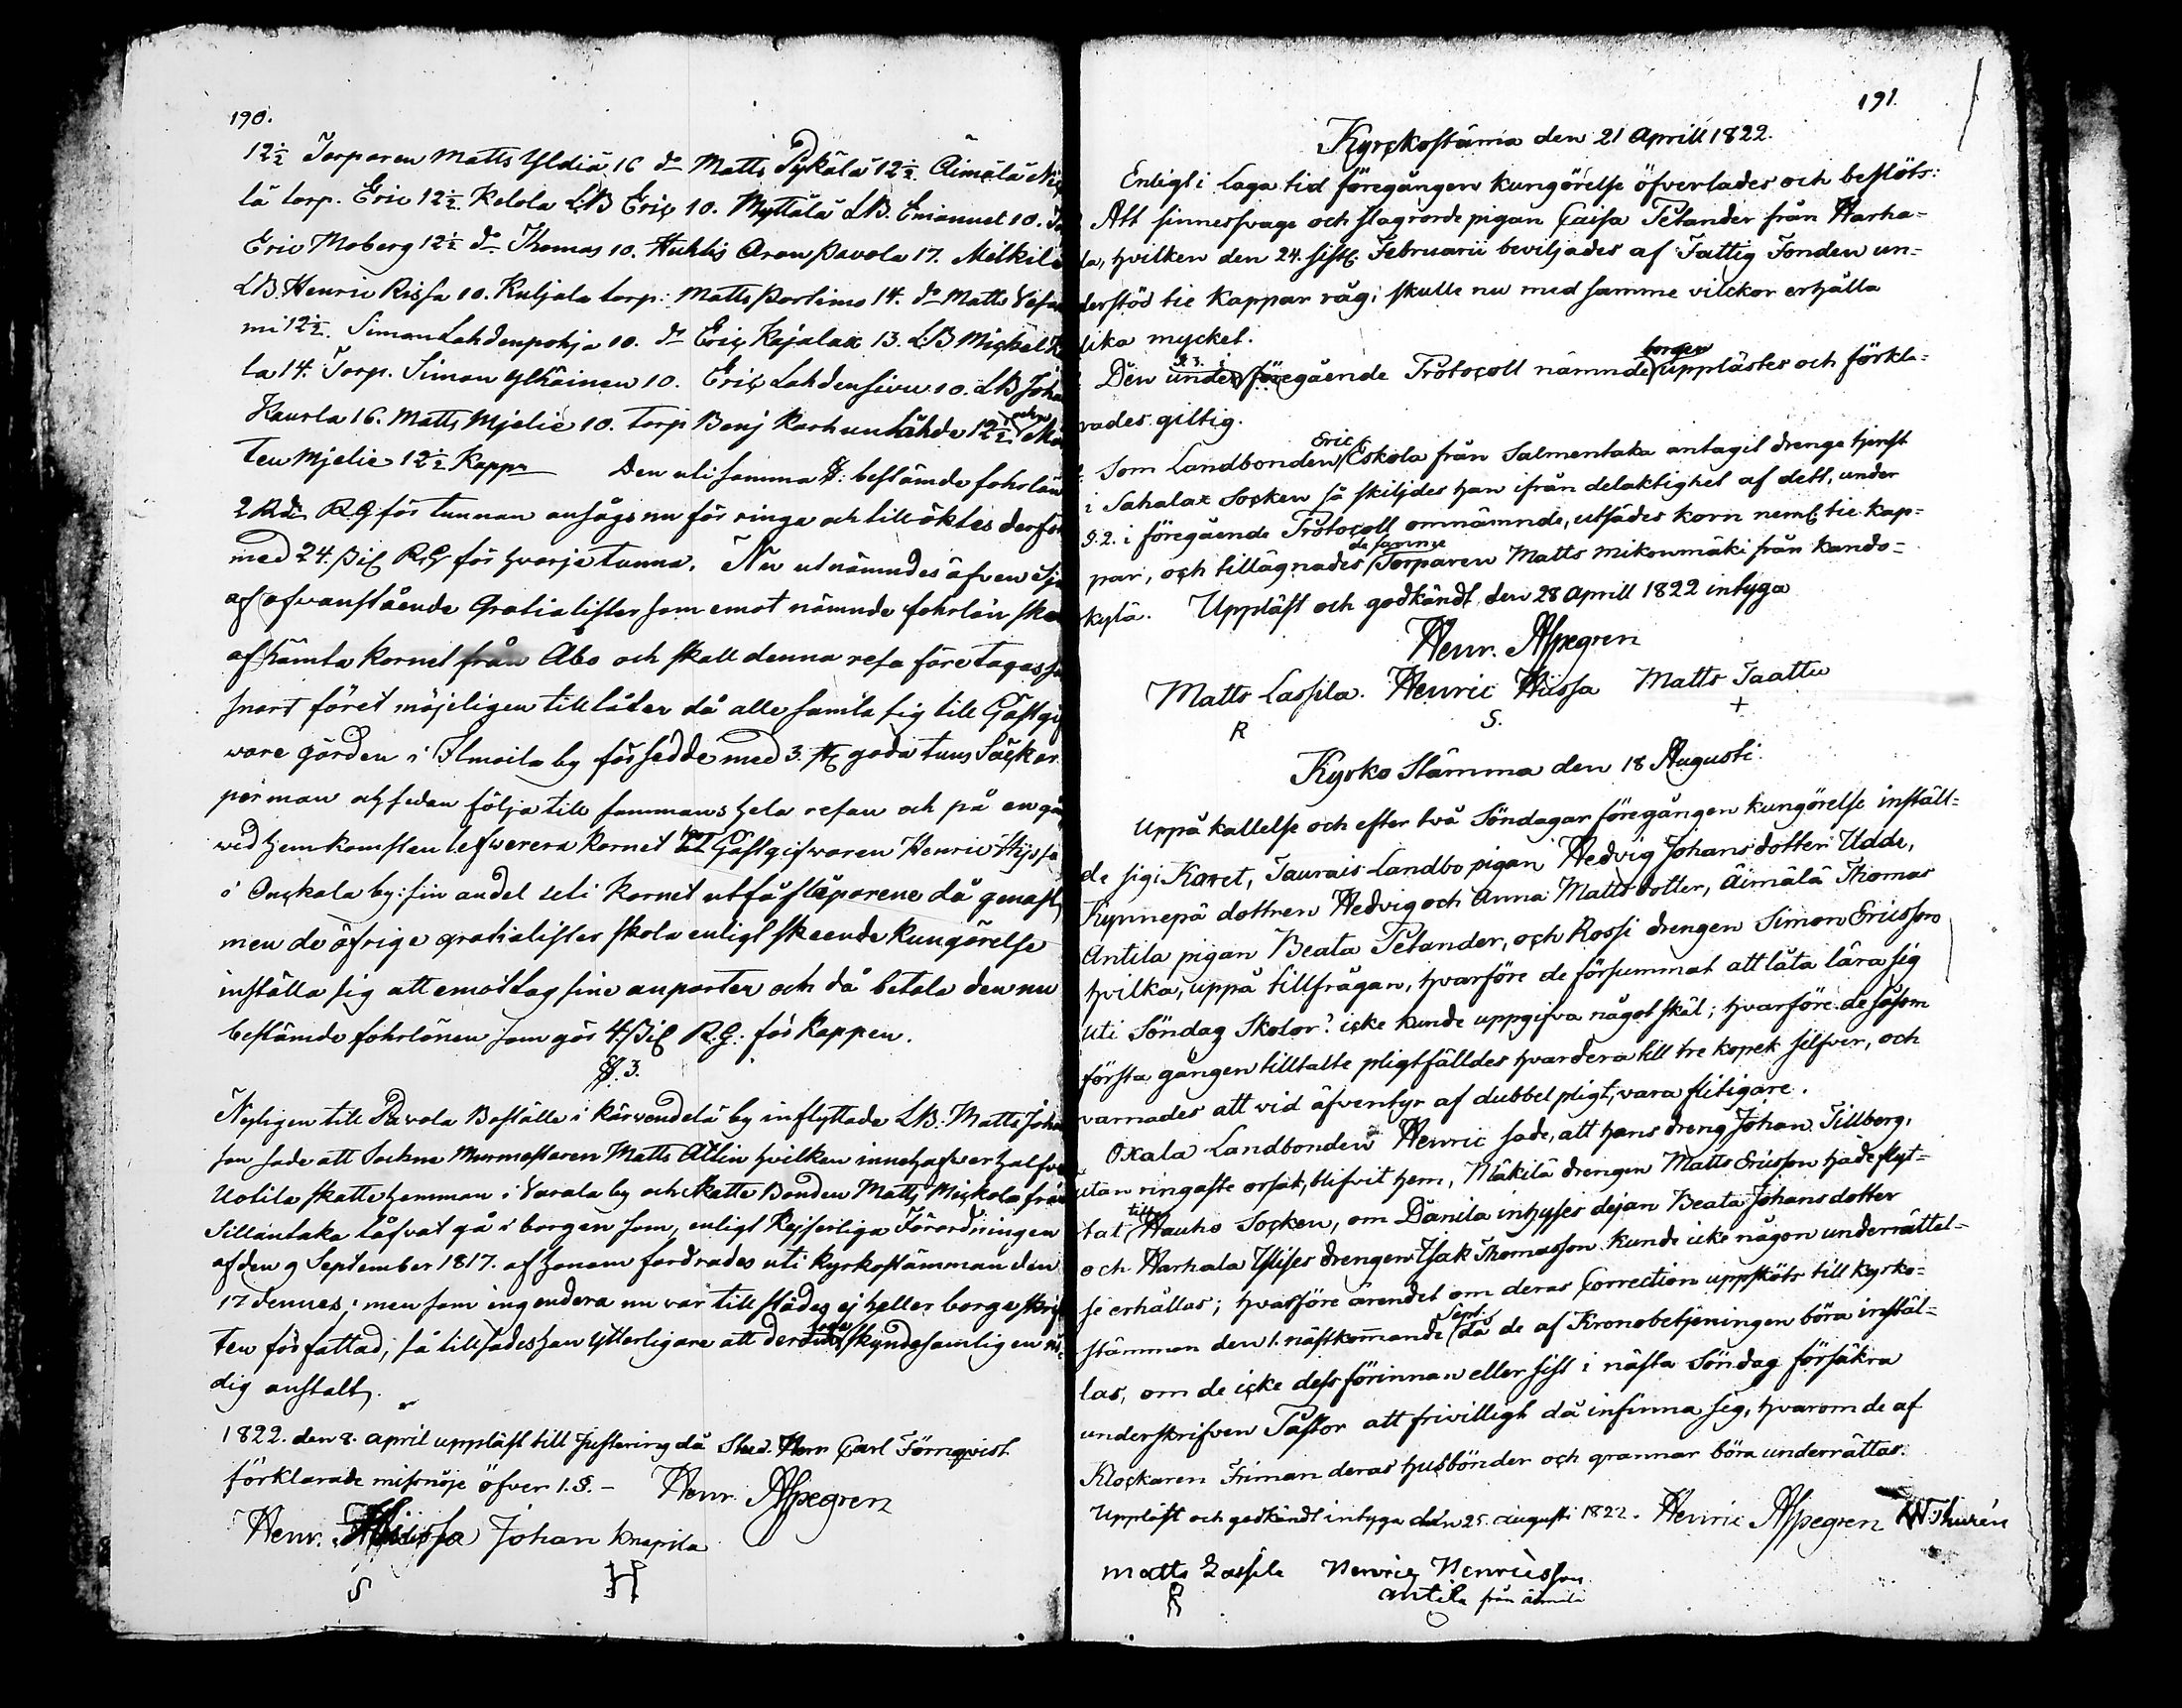 190.
12½ Torparen Matts Yldiä 16 do Matts Pykälä 12½. Äimälä
lä torp. Eric 12½ Kelola LB Eric 10. Myttälä LB. Emanuel 10.
Eric Moberg 12½ do Thomas 10. Huhtis Aron Pavola 17. Mälkilä
LB. Henric Rissa 10. Kuljala torp: Matts Portimo 14. do Matts
mi 12½. Simon Lahdenpohja 10. do Eric Kajalax 13. LB Michel
la 14. Torp. Simon Ylhäinen 10. Eric Lahdensivu 10. LB Joh
Kaurla 16. Matts Mjelie 10. torp Benj Karhunlähde 12½ och
ten Mjelie 12½ Kappr Den uti samma §: bestämde fohrlön
2 Rdr RG för tunnan ansågs nu för ringa och tillöktes derför
med 24. sk RG för hvarje tunna. Nu utnämndes äfven
af ofvanstående Gratialister som emot nämnde fohrlön
afhämta kornet från Åbo och skall denna resa företagas så
snart föret möjeligen tillåter då alle samla sig till Gästgif
ware gården i Ilmoila by försedde med 3. st goda tuns Säckar
per man och sedan följa till sammans hela resan och på en gång
wid hemkomsten lefwerera kornet hos Gästgifwaren Henric Hijssa
i Onckala by: sin andel uti Kornet utfå släparene då genast,
men de öfrige gratialister skola enligt skeende kungörelse
inställa sig att emottag sine anparter och då betala den nu
bestämde fohrlönen som gör 4. sk R.G: för kappen.
§. 3.
Nyligen till Pavola Boställe i Kärvendelä by inflyttade LB. Matts Johan
son sade att Sockne Murmestaren Matts Allin hvilken innehafwer halfva
Uotila skattehemman i Varala by och skatte Bonden Matts Mickola från
Sillantaka låfvat gå i borgen som, enligt Kejserliga Förordningen
af den 9 September 1817. af honom fordrades uti kyrkostämman den
17 dennes; men som ingendera nu var till städes ej heller borge skrif
ten författad, så tillsades han ytterligare att derom skyndesamligen
dig anstalt.
1822. den 8. april uppläst till justering då Stud. Herr Carl Törnqvist
förklarade missnöje öfver 1. §. – Henr. Aspegren
Henr. Hiissa Johan Knapila
S H
191.
Kyrckostäma den 21 Aprill 1822.
Enligt i Laga tid föregången kungörelse öfverlades och beslöts:
Att sinnessvage och slagrorde pigan Caisa Pelander från Harha=
la, hvilken den 24. sistl. Februarii beviljades af Fattig Fonden un=
derstöd tie Kappar råg; skulle nu med samme vilckor erhålla
lika mycket.
Den under §. 3. i föregående Protocoll nämnde borgen upplästes och förkla=
rades giltig.
Som Landbonden Eric Eskola från Salmentaka antagit drenge tjenst
i Sahalax Socken så skiljdes han ifrån delaktighet af dett, under
§. 2. i föregående Protocoll omnämnde, utsädes korn neml. tie kap=
par, och tillägnades de samme Torparen Matts Mikonmäki från Kando=
kylä. Uppläst och godkändt den 28 Aprill 1822 intyga
Henr. Aspegren
Matts Lassila. Henric Hiissa Matts Taattu
R S. +
Kyrko Stämma den 18 Augusti.
Uppå kallelse och efter två Söndagar föregången kungörelse inställ=
de sig: Karet, Taurais Landbo pigan Hedvig Johansdotter Udde,
Kynnepä dottren Hedvig och Anna Mattsdotter, Äimälä Thomas
Antila pigan Beata Pelander, och Rossi drengen Simon Ericsson
hvilka, uppå tillfrågan, hvarföre de försummat att låta lära sig
uti Söndag Skolor? icke kunde uppgifva något skäl; hvarföre de såsom
första gången tilltalte pligtfälldes hvardera till tre kopek silfver, och
varnades att vid äfventyr af dubbel pligt, vara flitigare.
Oxala Landbonden Henric sade, att hans dreng Johan Tillberg,
utan ringaste orsak, blifvit hem, Mäkilä drengen Matts Ericsson hade flyt=
tat till Hauho Socken, om Danila inhyses dejan Beata Johansdotter
och Harhala Ylises drengen Isak Thomasson kunde icke någon underrättel=
se erhållas; hvarföre ärendet om deras Correction uppsköts till kyrko=
stämman den 1. nästkommande Sept. då de af Kronobetjeningen böra instäl=
las, om de icke dess förinnan eller sist i nästa Söndag försäkra
underskrifven Pastor att frivilligt då infinna sig, hvarom de af
Klockaren Friman deras husbönder och grannar böra underrättas.
Uppläst och godkändt intyga den 25. augusti 1822. Henric Aspegren W Thurén
Matts Lassila Henric Henricsson
R antila från äimälä